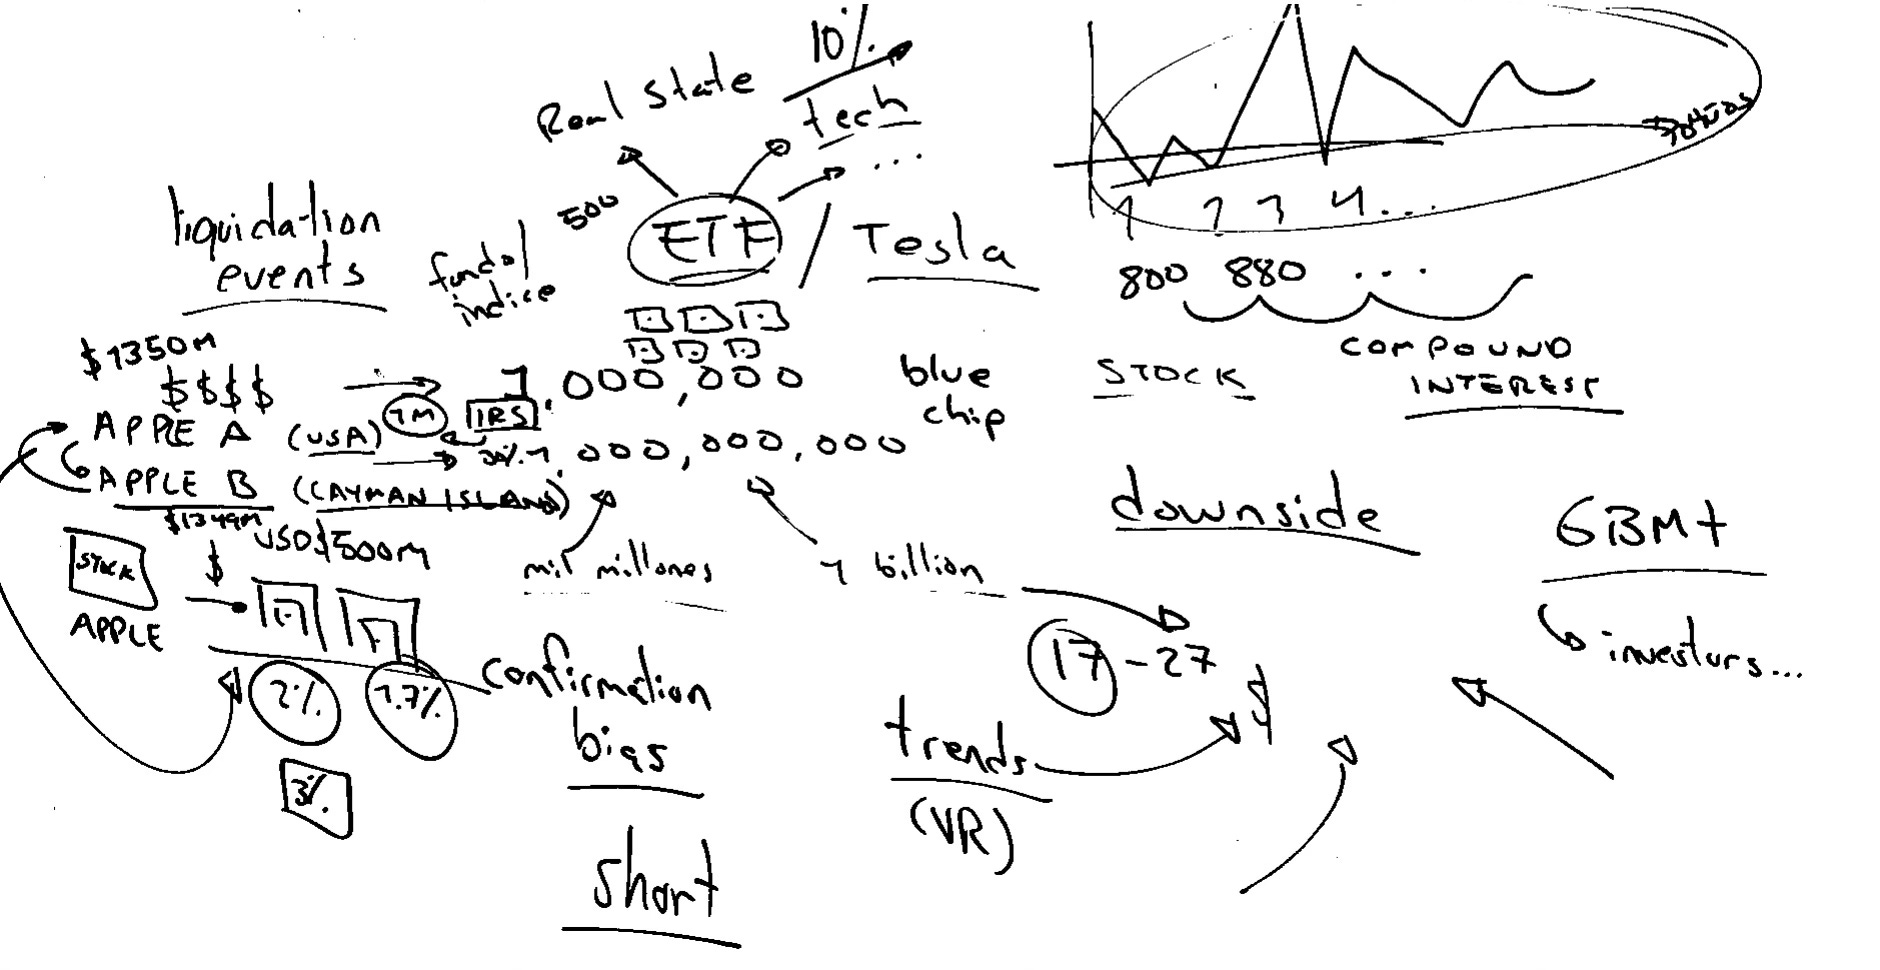 10%
Real state
tech
...
500
ETF
/ Tesla
liquidation
events
fundo/
indice
1 2 3 4...
800 880 ...
COMPOUND
INTEREST
STOCK
blue
chip
$1350M
$$$$
1,000,000
APPLE A (USA)
1M
IRS
1,000,000,000
APPLE B (CAYMAN ISLAND)
$1349M
USD$500M
STOCK
$
APPLE
mil millones
1 billion
downside
GBM+
investors...
17-27
2%
1.7%
3%
confirmation
bias
trends
$
(VR)
short